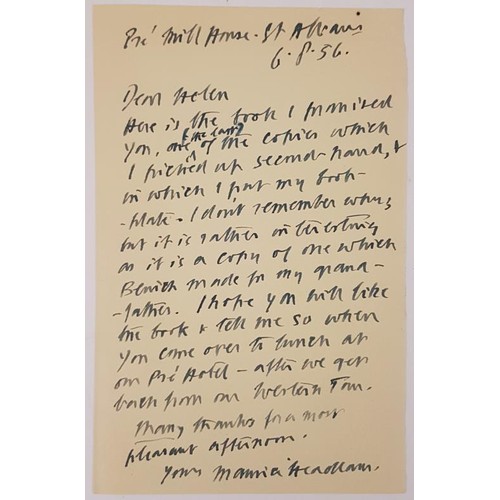 Pré Mill House - St Albans
6.8.56.
Dear Helen
Here is the book I promised
you, one (the last) of the copies which
I picked up second-hand, &
in which I put my book-
plate - I don't remember why,
but it is rather interesting
as it is a copy of one which
Bewick made for my grand-
-father. I hope you will like
the book & tell me so when
you come over to lunch at
our Pré Hotel - after we get
back from our Western Tour.
Many thanks for a most
pleasant afternoon.
Yours Maurice Headlam.